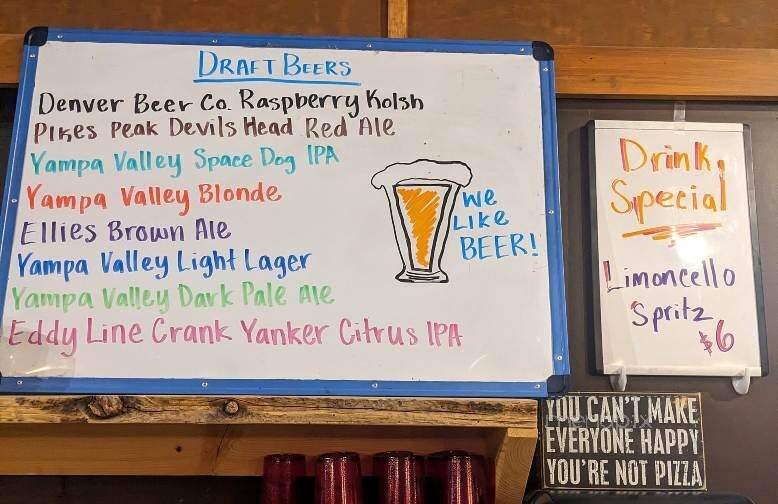 DRAFT BEERS
Denver Beer Co. Raspberry Kolsh
Pikes Peak Devils Head Red Ale
Yampa Valley Space Dog IPA
Yampa Valley Blonde
Ellies Brown Ale
Yampa Valley Light Lager
Yampa Valley Dark Pale Ale
Eddy Line Crank Yanker Citrus IPA
We
Like
BEER!
Drink
Special
Limoncello
Spritz
$6
YOU CAN'T MAKE
EVERYONE HAPPY
YOU'RE NOT PIZZA